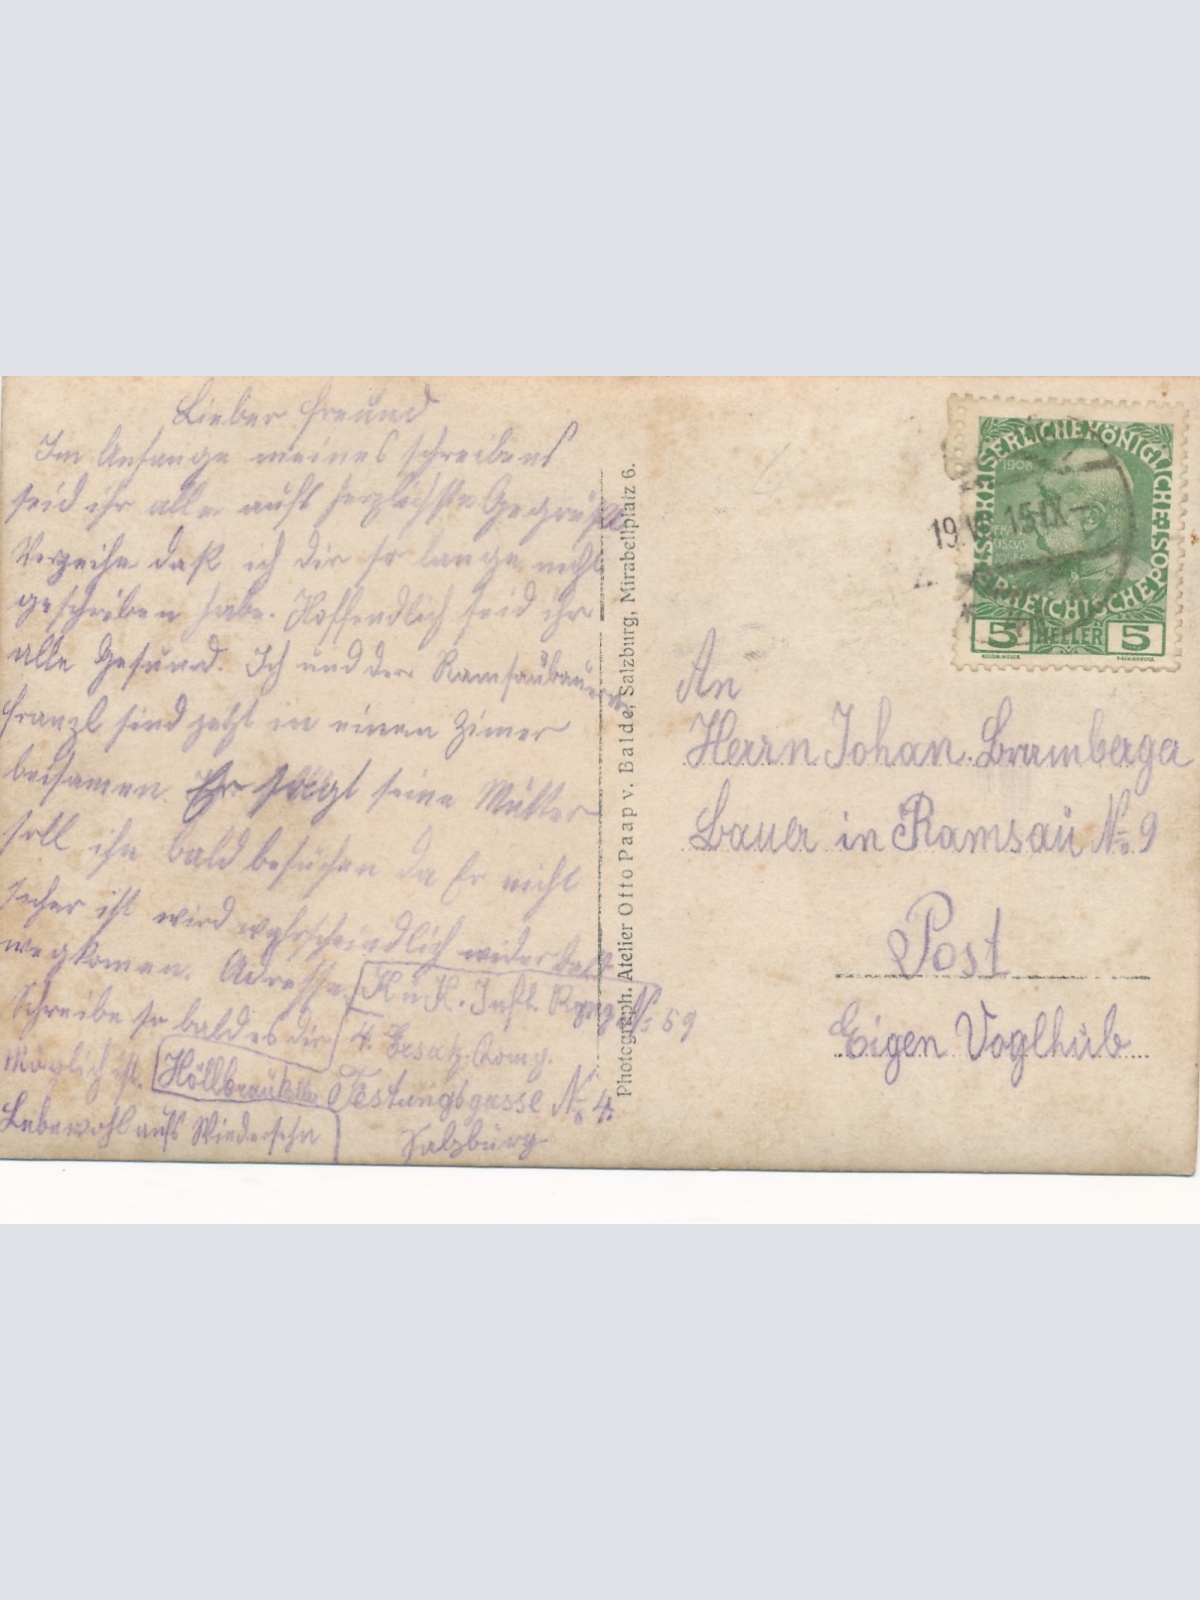 Lieber Freund
Im Anfange meines schreibens
seid ihr alle aufs herzlichste Gegrüßt
Verzeihe daß ich dir so lange nicht
geschrieben habe. Hoffendlich seid ihr
alle Gesund. Ich und der Ramsaubauern
Franzl sind jetzt in einen Zimer
beisamen. Er sagt seine Mutter
soll ihn bald besuchen da Er nicht
sicher ist wird wahrscheindlich wider bald
wegkomen. Adresse K u K. Inft. Regg. No: 59
Schreibe so bald es dir 4. Ersatz Komp.
Möglich ist. Höllbräukeller Festungsgasse No 4
Lebewohl aufs Wiedersehn Salzburg
Photograph. Atelier Otto Paap v. Balde, Salzburg, Mirabellplatz 6.
KAISERLICHE KÖNIGLICHE ÖSTERREICHISCHE POST
1908
5 HELLER 5
19.V 15 IX
An
Herrn Johan. Bramberga
Bauer in Ramsau No 9
Post
Eigen Voglhub